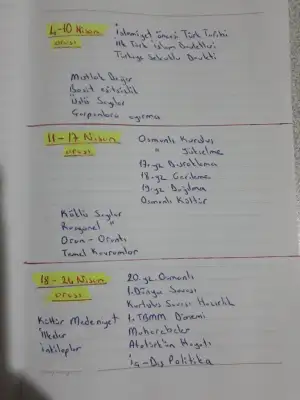 4-10 Nisan
İslamiyet öncesi Türk Tarihi
ilk Türk islam Devletleri
Türkiye Selçuklu Devleti
Mutlak Değer
Basit eşitsizlik
Üslü Sayılar
Çarpanlara ayırma
11-17 Nisan
Osmanlı Kuruluş
" Yükselme
17.yz Duraklama
18.yz Gerileme
19.yz Dağılma
Osmanlı Kültür
Köklü Sayılar
Rasyonel "
Oran - Orantı
Temel Kavramlar
18-24 Nisan
20.yz Osmanlı
1.Dünya Savaşı
Kurtuluş Savaşı Hazırlık
1.TBMM Dönemi
Muharebeler
Atatürk'ün Hayatı
İç-Dış Politika
Kültür Medeniyet
İlkeler
inkilaplar